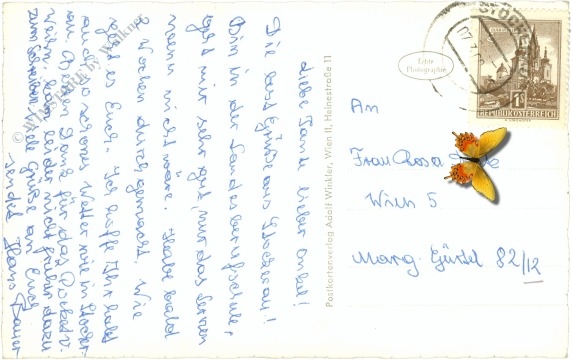 Liebe Tante lieber Onkel!
Die besten Grüße aus Stockerau!
Bin in der Landesberufschule,
geht mir sehr gut, nur das Lernen
wenn nicht wäre. Habe bald
2 Wochen durchgemacht. Wie
geht es Euch. Ich hoffe Ihr habt
auch so schönes Wetter wie in Stocker-
au. Besten Dank für das Packet v.
Weihn. kam leider nicht früher dazu
zum Schreiben. Viele Grüße an Euch
sendet Hans Bauer
Postkartenverlag Adolf Winkler, Wien II, Heinestraße 11
Echte
Photographie
STOCKERAU
1S
REPUBLIK ÖSTERREICH
An
Frau Rosa
Wien 5
Marg. Gürtel 82/12